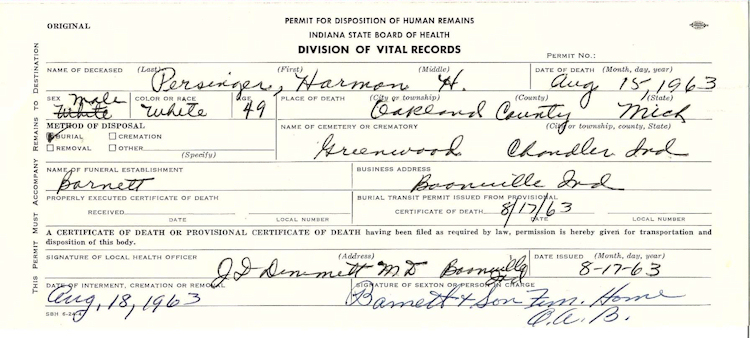 ORIGINAL
PERMIT FOR DISPOSITION OF HUMAN REMAINS
INDIANA STATE BOARD OF HEALTH
DIVISION OF VITAL RECORDS
PERMIT NO.:
THIS PERMIT MUST ACCOMPANY REMAINS TO DESTINATION
NAME OF DECEASED (Last) (First) (Middle) DATE OF DEATH (Month, day, year)
Persinger, Harmon H. Aug 15, 1963
SEX COLOR OR RACE AGE PLACE OF DEATH (City or township) (County) (State)
Male
White White 49 Oakland County Mich
METHOD OF DISPOSAL NAME OF CEMETERY OR CREMATORY (City or township, county, State)
BURIAL CREMATION
REMOVAL OTHER (Specify)
Greenwood Chandler Ind
NAME OF FUNERAL ESTABLISHMENT BUSINESS ADDRESS
Barnett Boonville Ind
PROPERLY EXECUTED CERTIFICATE OF DEATH BURIAL TRANSIT PERMIT ISSUED FROM PROVISIONAL
RECEIVED CERTIFICATE OF DEATH 8/17/63
DATE LOCAL NUMBER DATE LOCAL NUMBER
A CERTIFICATE OF DEATH OR PROVISIONAL CERTIFICATE OF DEATH having been filed as required by law, permission is hereby given for transportation and
disposition of this body.
SIGNATURE OF LOCAL HEALTH OFFICER (Address) DATE ISSUED (Month, day, year)
MD Boonville 8-17-63
DATE OF INTERMENT, CREMATION OR REMOVAL SIGNATURE OF SEXTON OR PERSON IN CHARGE
Aug, 18, 1963 Barnett & Son Fun. Home
C.A.B.